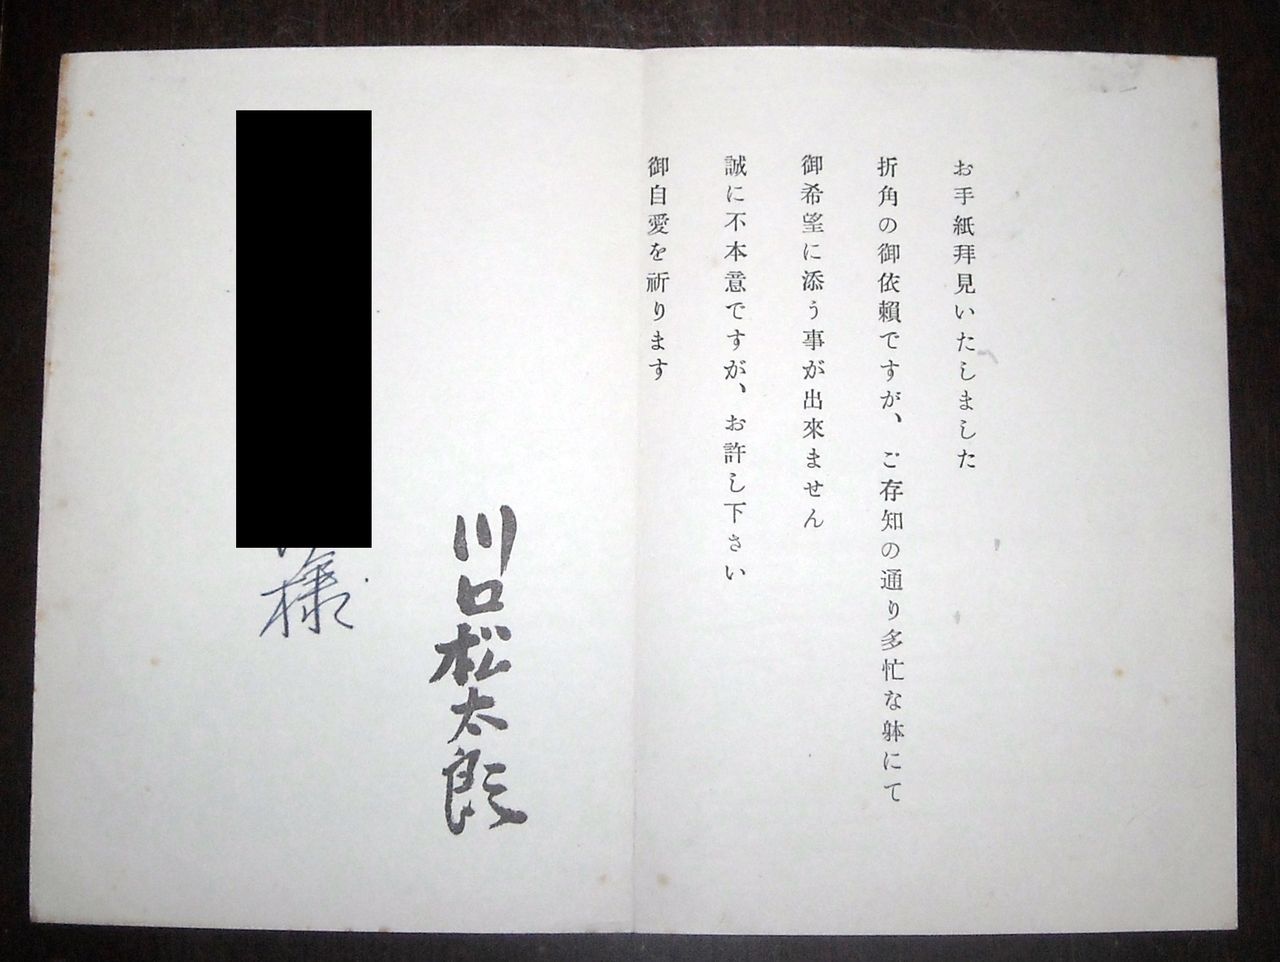 お手紙拝見いたしました
折角の御依頼ですが、ご存知の通り多忙な躰にて
御希望に添う事が出來ません
誠に不本意ですが、お許し下さい
御自愛を祈ります
川口松太郎
様